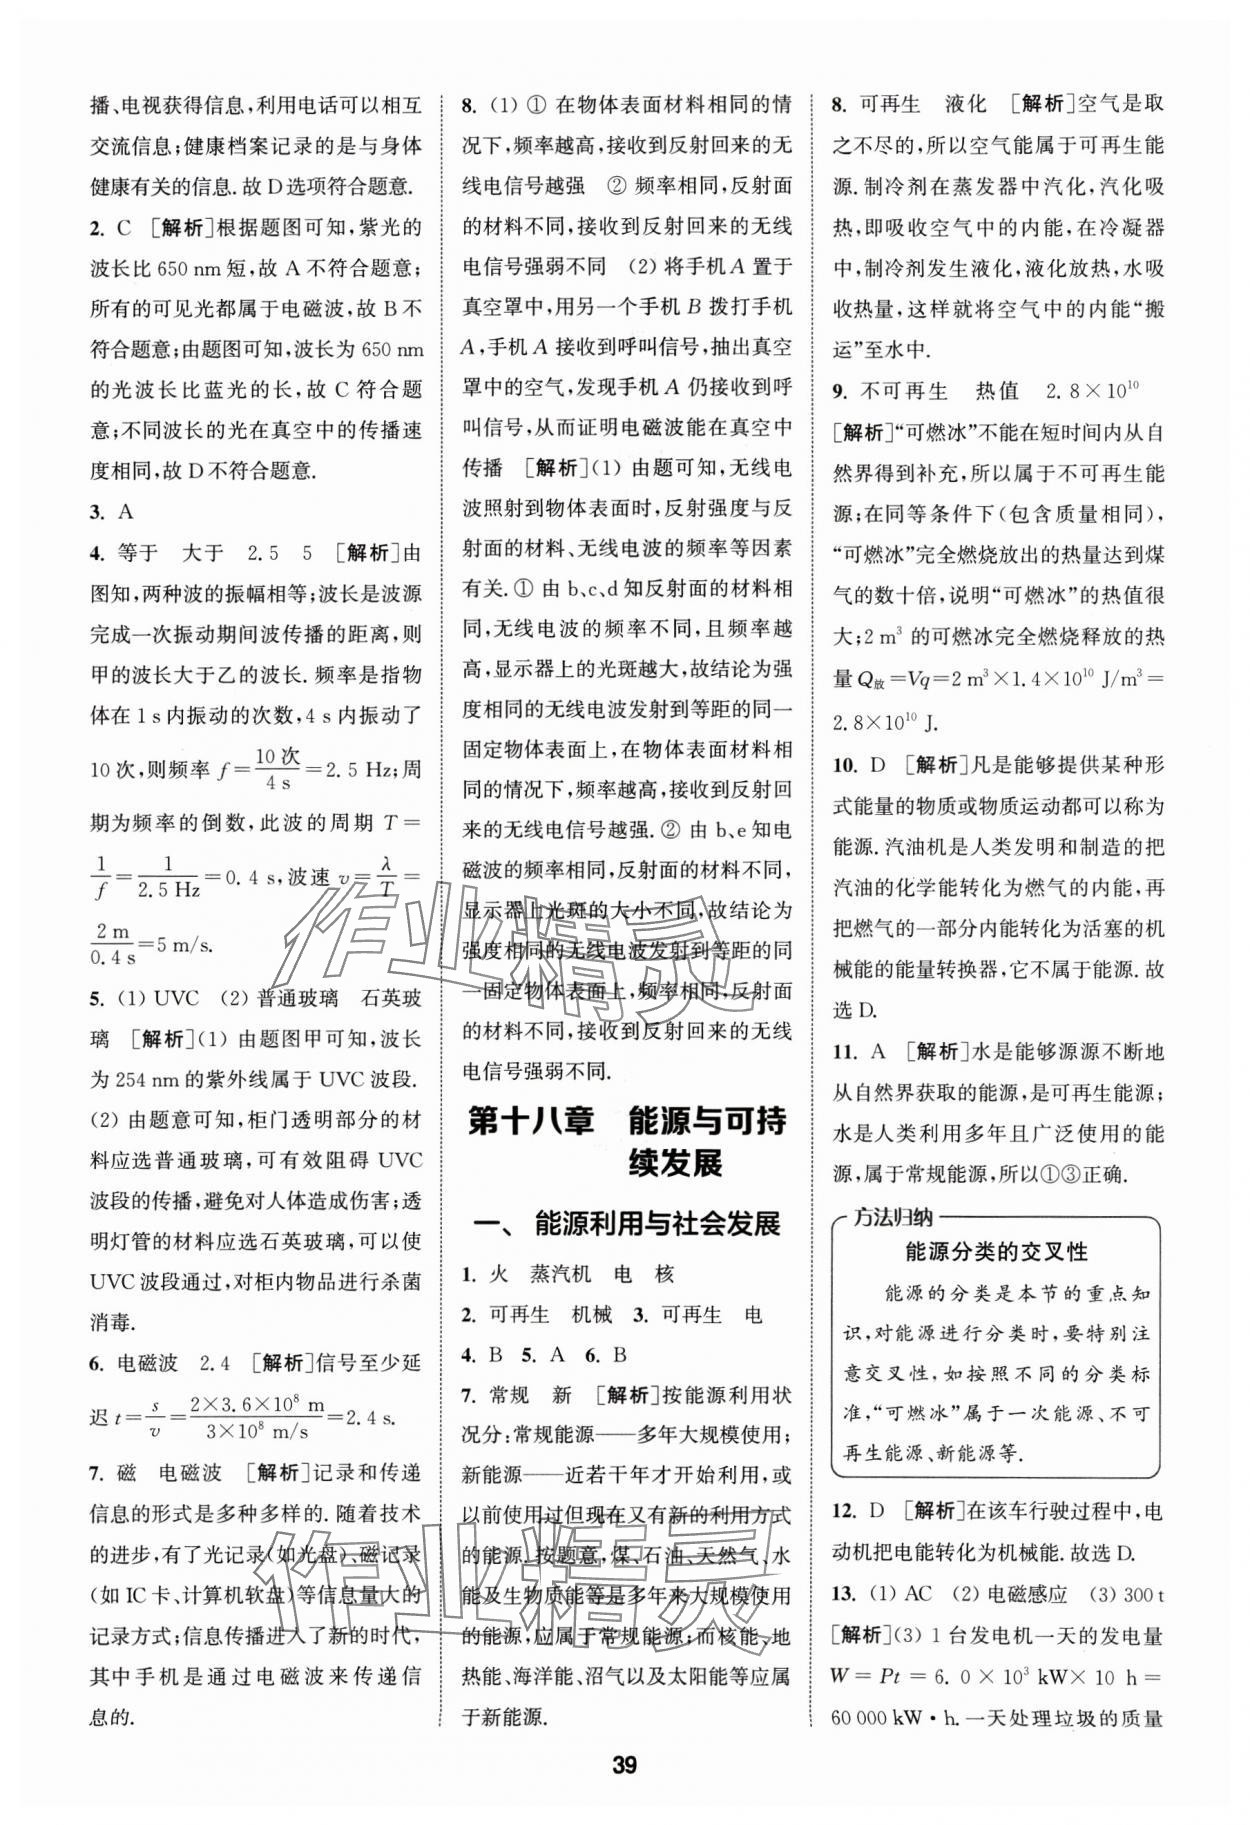 播、电视获得信息,利用电话可以相互
交流信息;健康档案记录的是与身体
健康有关的信息.故D选项符合题意.
2. C [解析]根据题图可知,紫光的
波长比650 nm短,故A不符合题意;
所有的可见光都属于电磁波,故B不
符合题意;由题图可知,波长为650 nm
的光波长比蓝光的长,故C符合题
意;不同波长的光在真空中的传播速
度相同,故D不符合题意.
3. A
4. 等于 大于 2.5 5 [解析]由
图知,两种波的振幅相等;波长是波源
完成一次振动期间波传播的距离,则
甲的波长大于乙的波长.频率是指物
体在1 s内振动的次数,4 s内振动了
10次,则频率 f=10次/4 s=2.5 Hz;周
期为频率的倒数,此波的周期 T=
1/f=1/2.5 Hz=0.4 s,波速 v=λ/T=
2 m/0.4 s=5 m/s.
5. (1) UVC (2) 普通玻璃 石英玻
璃 [解析](1) 由题图甲可知,波长
为254 nm的紫外线属于UVC波段.
(2) 由题意可知,柜门透明部分的材
料应选普通玻璃,可有效阻碍UVC
波段的传播,避免对人体造成伤害;透
明灯管的材料应选石英玻璃,可以使
UVC波段通过,对柜内物品进行杀菌
消毒.
6. 电磁波 2.4 [解析]信号至少延
迟 t=s/v=2×3.6×10⁸ m/3×10⁸ m/s=2.4 s.
7. 磁 电磁波 [解析]记录和传递
信息的形式是多种多样的.随着技术
的进步,有了光记录(如光盘)、磁记录
(如IC卡、计算机软盘)等信息量大的
记录方式;信息传播进入了新的时代,
其中手机是通过电磁波来传递信
息的.
8. (1) ① 在物体表面材料相同的情
况下,频率越高,接收到反射回来的无
线电信号越强 ② 频率相同,反射面
的材料不同,接收到反射回来的无线
电信号强弱不同 (2) 将手机A置于
真空罩中,用另一个手机B拨打手机
A,手机A接收到呼叫信号,抽出真空
罩中的空气,发现手机A仍接收到呼
叫信号,从而证明电磁波能在真空中
传播 [解析](1) 由题可知,无线电
波照射到物体表面时,反射强度与反
射面的材料、无线电波的频率等因素
有关.① 由b、c、d知反射面的材料相
同,无线电波的频率不同,且频率越
高,显示器上的光斑越大,故结论为强
度相同的无线电波发射到等距的同一
固定物体表面上,在物体表面材料相
同的情况下,频率越高,接收到反射回
来的无线电信号越强.② 由b、e知电
磁波的频率相同,反射面的材料不同,
显示器上光斑的大小不同,故结论为
强度相同的无线电波发射到等距的同
一固定物体表面上,频率相同,反射面
的材料不同,接收到反射回来的无线
电信号强弱不同.
第十八章 能源与可持
续发展
一、能源利用与社会发展
1. 火 蒸汽机 电 核
2. 可再生 机械 3. 可再生 电
4. B 5. A 6. B
7. 常规 新 [解析]按能源利用状
况分:常规能源——多年大规模使用;
新能源——近若干年才开始利用,或
以前使用过但现在又有新的利用方式
的能源.按题意,煤、石油、天然气、水
能及生物质能等是多年来大规模使用
的能源,应属于常规能源;而核能、地
热能、海洋能、沼气以及太阳能等应属
于新能源.
8. 可再生 液化 [解析]空气是取
之不尽的,所以空气能属于可再生能
源.制冷剂在蒸发器中汽化,汽化吸
热,即吸收空气中的内能,在冷凝器
中,制冷剂发生液化,液化放热,水吸
收热量,这样就将空气中的内能“搬
运”至水中.
9. 不可再生 热值 2.8×10¹⁰
[解析]“可燃冰”不能在短时间内从自
然界得到补充,所以属于不可再生能
源;在同等条件下(包含质量相同),
“可燃冰”完全燃烧放出的热量达到煤
气的数十倍,说明“可燃冰”的热值很
大;2 m³ 的可燃冰完全燃烧释放的热
量 Q放=Vq=2 m³×1.4×10¹⁰ J/m³=
2.8×10¹⁰ J.
10. D [解析]凡是能够提供某种形
式能量的物质或物质运动都可以称为
能源.汽油机是人类发明和制造的把
汽油的化学能转化为燃气的内能,再
把燃气的一部分内能转化为活塞的机
械能的能量转换器,它不属于能源.故
选D.
11. A [解析]水是能够源源不断地
从自然界获取的能源,是可再生能源;
水是人类利用多年且广泛使用的能
源,属于常规能源,所以①③正确.
方法归纳
能源分类的交叉性
能源的分类是本节的重点知
识,对能源进行分类时,要特别注
意交叉性,如按照不同的分类标
准,“可燃冰”属于一次能源、不可
再生能源、新能源等.
12. D [解析]在该车行驶过程中,电
动机把电能转化为机械能.故选D.
13. (1) AC (2) 电磁感应 (3) 300 t
[解析](3) 1台发电机一天的发电量
W = Pt = 6.0×10³ kW×10 h =
60 000 kW·h.一天处理垃圾的质量
39
作业精灵
作业精灵